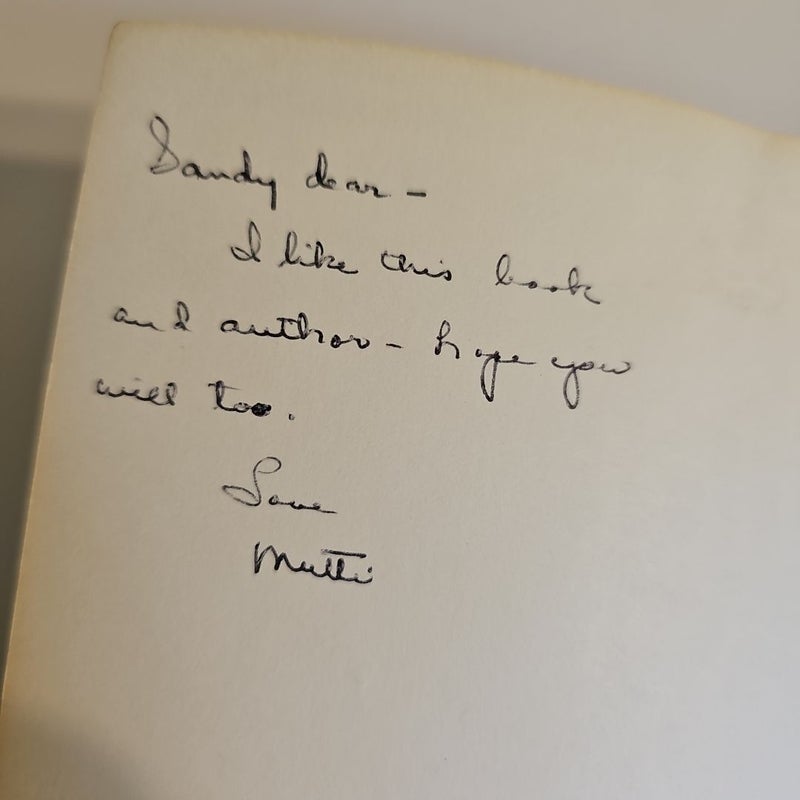 Sandy dear –
I like this book
and author – hope you
will too.
Love
Mutti